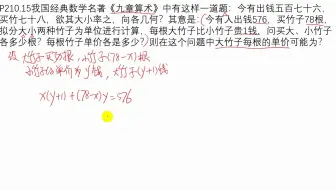 P210.15我国经典数学名著《九章算术》中有这样一道题：今有出钱五百七十六，
买竹七十八，欲其大小率之，问各几何？其意是：今有人出钱576，买竹子78根，
拟分大小两种竹子为单位进行计算，每根大竹子比小竹子贵1钱，问买大、小竹子
各多少根？每根竹子单价各是多少？则在这个问题中大竹子每根的单价可能为？
设 大竹子买x根，小竹子(78-x)根
小竹子的单价为y钱，大竹子(y+1)钱
x(y+1)+(78-x)y=576